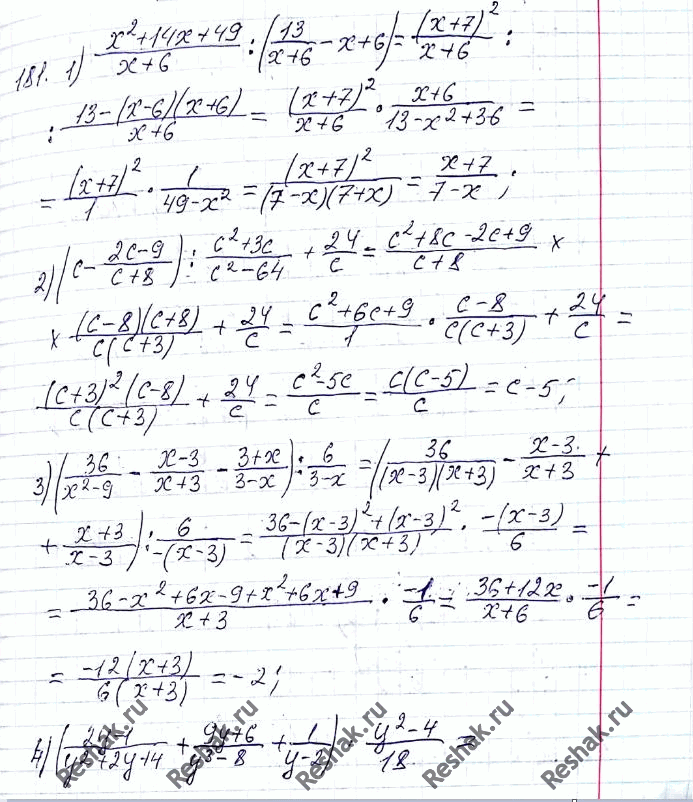 181. 1) (x²+14x+49)/(x+6) : (13/(x+6) - x+6) = (x+7)²/(x+6) :
: (13-(x-6)(x+6))/(x+6) = (x+7)²/(x+6) · (x+6)/(13-x²+36) =
= (x+7)²/1 · 1/(49-x²) = (x+7)²/((7-x)(7+x)) = (x+7)/(7-x);
2) (c - (2c-9)/(c+8)) : (c²+3c)/(c²-64) + 24/c = (c²+8c-2c+9)/(c+8) ×
× ((c-8)(c+8))/(c(c+3)) + 24/c = (c²+6c+9)/1 · (c-8)/(c(c+3)) + 24/c =
((c+3)²(c-8))/(c(c+3)) + 24/c = (c²-5c)/c = (c(c-5))/c = c-5;
3) (36/(x²-9) - (x-3)/(x+3) - (3+x)/(3-x)) : 6/(3-x) = (36/((x-3)(x+3)) - (x-3)/(x+3) +
+ (x+3)/(x-3)) : 6/(-(x-3)) = (36-(x-3)²+(x-3)²)/((x-3)(x+3)) · (-(x-3))/6 =
= (36-x²+6x-9+x²+6x+9)/(x+3) · (-1)/6 = (36+12x)/(x+6) · (-1)/6 =
= (-12(x+3))/(6(x+3)) = -2;
4) ( /(y²+2y+4) + (9y+6)/(y³-8) + 1/(y-2)) · (y²-4)/18 =
Reshak.ru Reshak.ru Reshak.ru Reshak.ru Reshak.ru